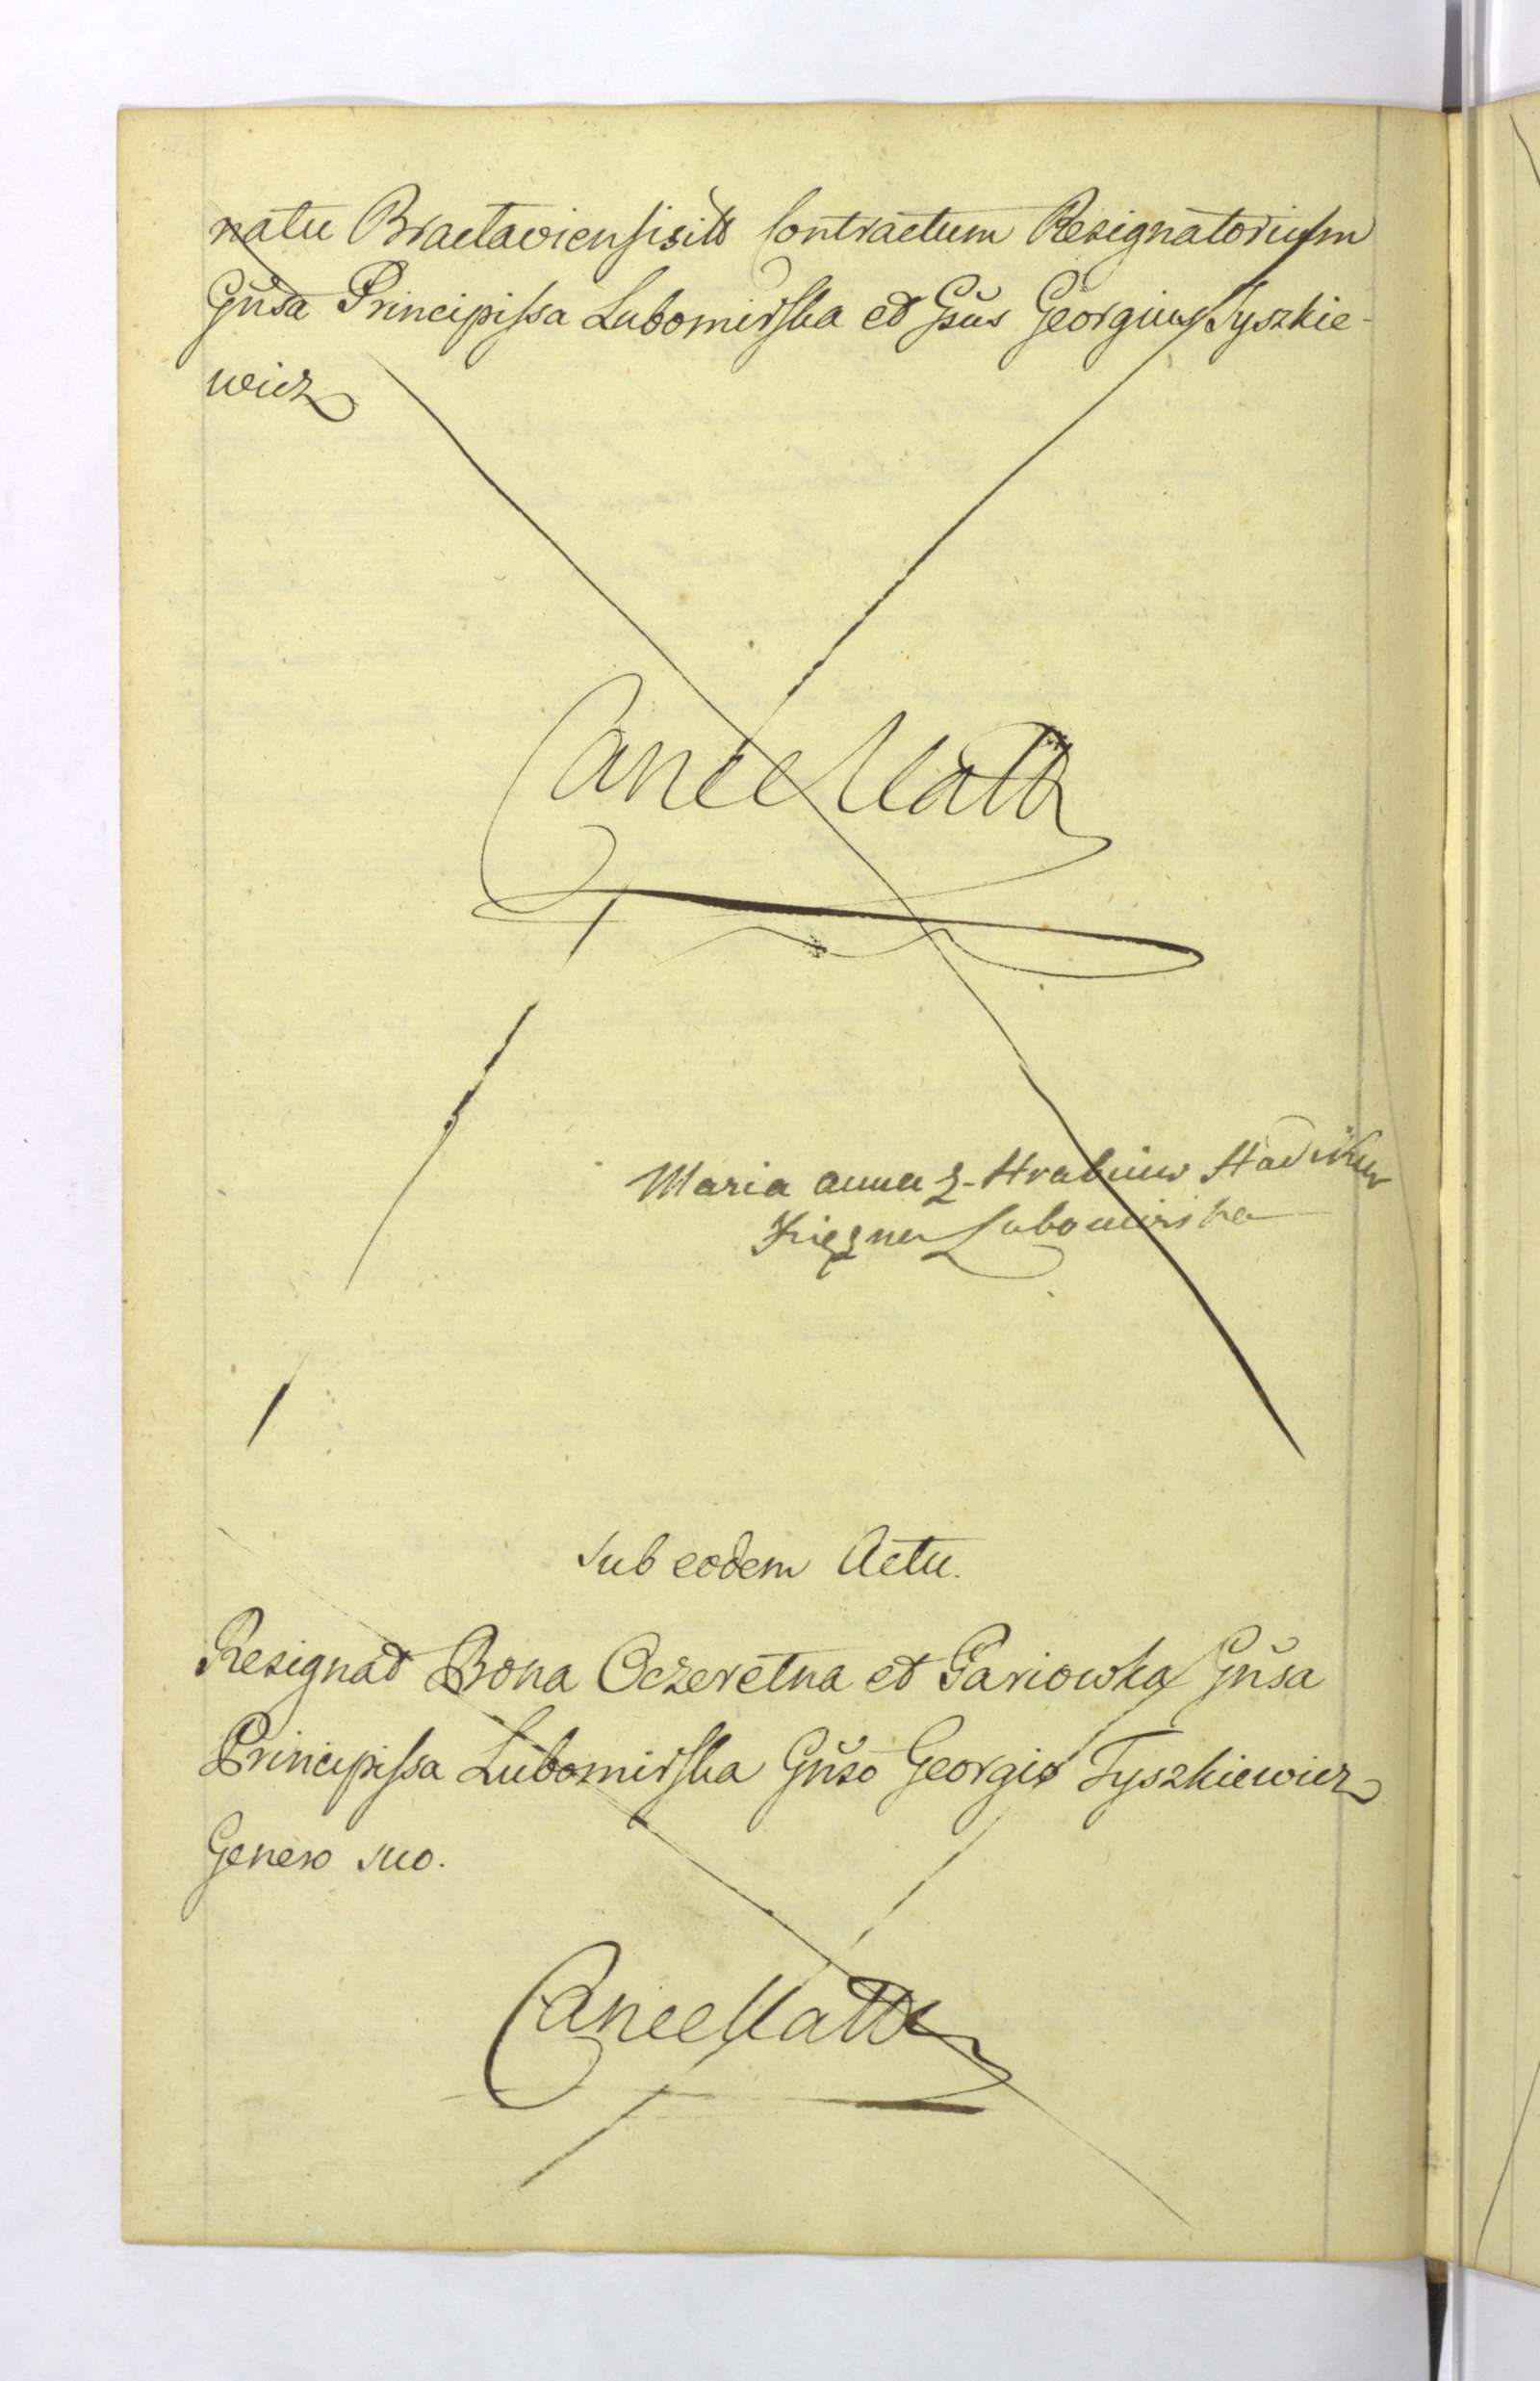 natu Braclaviensi sito Contractum Resignatorium
Gnsa Principissa Lubomirska et Gsus Georgius Tyszkie-
wicz
Cancellatt
Maria anna z Hrabiuw Hadikuw
Xięzna Lubomirska
Sub eodem Actu.
Resignat Bona Oczeretna et Pariowka Gnsa
Principissa Lubomirska Gnso Georgio Tyszkiewicz
Genero suo.
Cancellatt